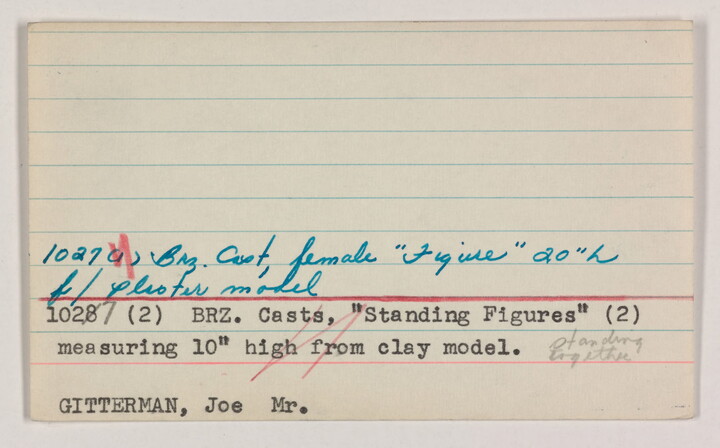 1027(1) Brz. Cast, female "Figure" 20"h
f/ plaster model
10287 (2) BRZ. Casts, "Standing Figures" (2)
measuring 10" high from clay model.
standing
together
GITTERMAN, Joe Mr.